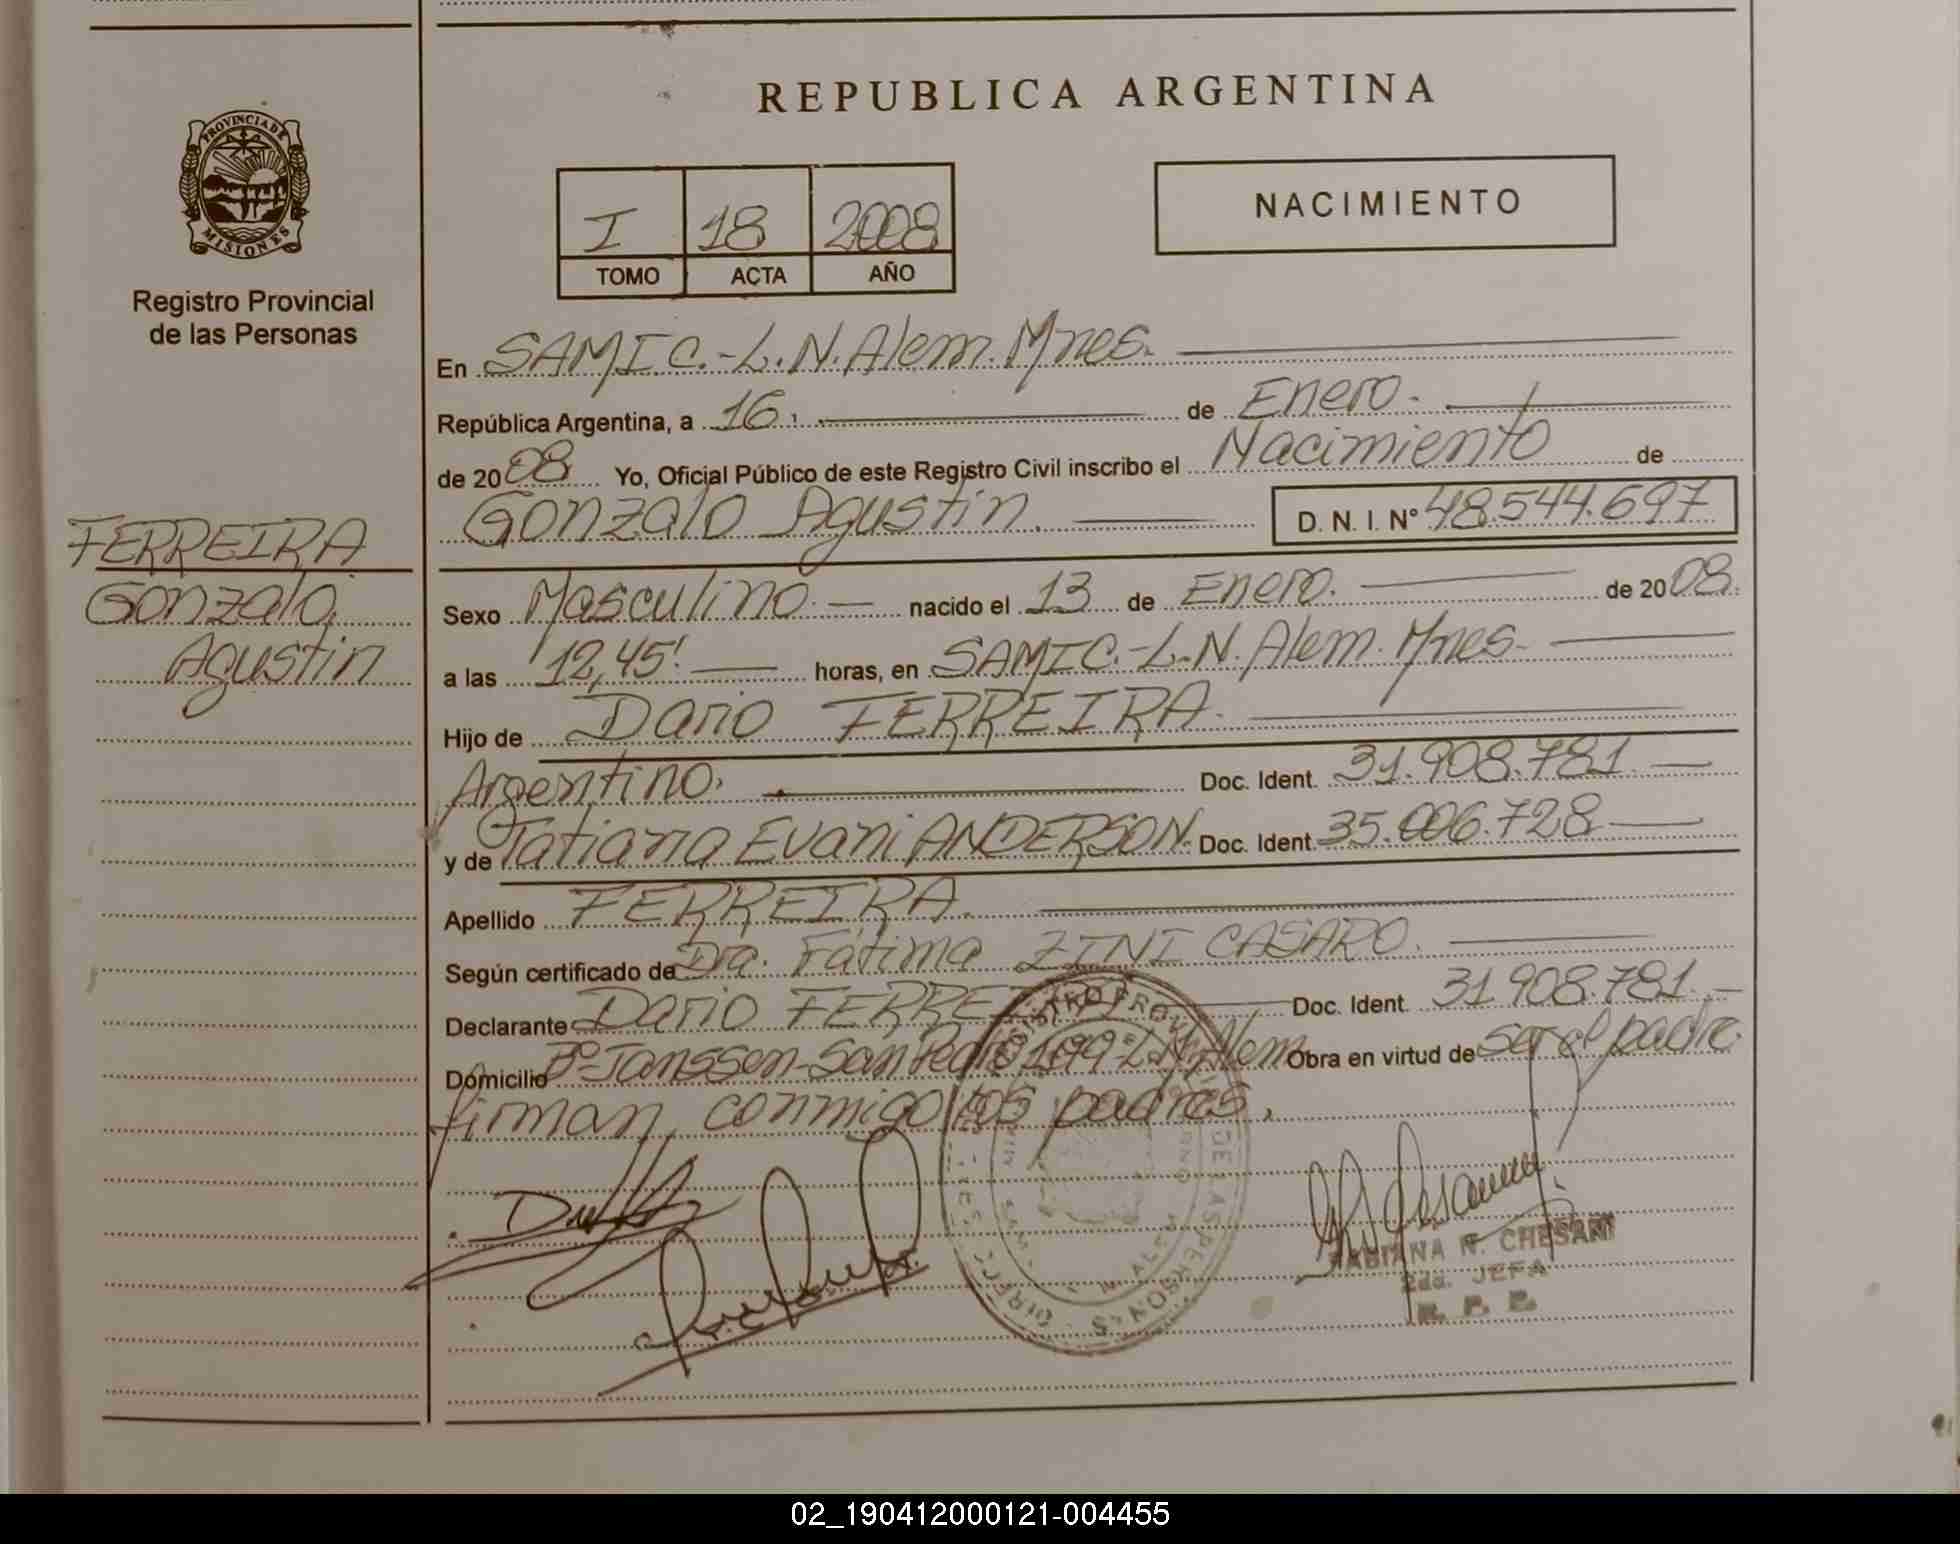 REPUBLICA ARGENTINA
PROVINCIA DE
MISIONES
Registro Provincial
de las Personas
I 18 2008
TOMO ACTA AÑO
NACIMIENTO
En SAMIC.-L.N.Alem.Mnes.
República Argentina, a 16. de Enero.
de 2008 Yo, Oficial Público de este Registro Civil inscribo el Nacimiento de
Gonzalo Agustin. D. N. I. Nº 48.544.697
FERREIRA
Gonzalo.
Agustin
Sexo Masculino. nacido el 13 de Enero. de 2008.
a las 12,45! horas, en SAMIC.-L.N.Alem.Mnes.
Hijo de Dario FERREIRA.
Argentino. Doc. Ident. 31.908.781
y de Tatiana Evani ANDERSON. Doc. Ident. 35.006.728
Apellido FERREIRA.
Según certificado de Dra. Fátima ZINI CASARO.
Declarante Dario FERREIRA Doc. Ident. 31.908.781.
Domicilio Bº Janssen-San Pedro L.N.Alem Obra en virtud de ser el padre.
firman conmigo los padres.
REGISTRO PROVINCIAL DE LAS PERSONAS
L. N. ALEM
FABIANA N. CHESANI
2da. JEFA
R. P. P.
02_190412000121-004455